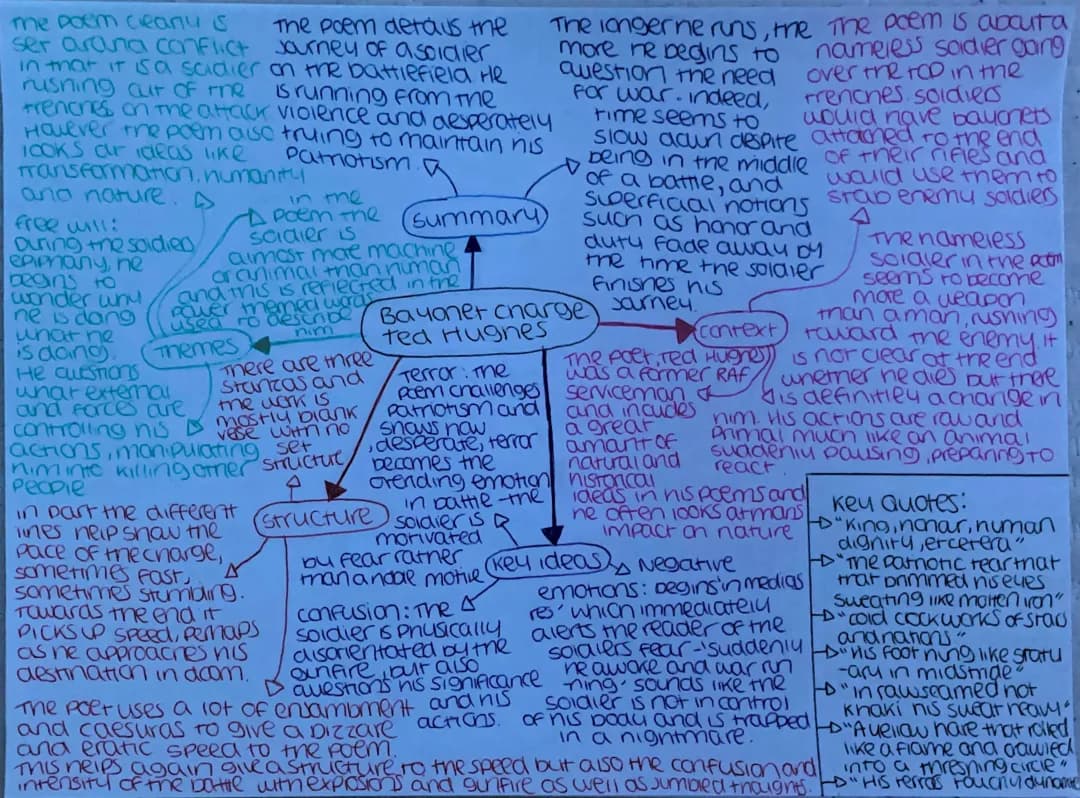 Bayonet charge
Ted Hughes
Summary
The poem details the
journey of a soldier
on the battlefield He
is running from the
violence and desperately
trying to maintain his
patriotism.
The longer he runs, the
more he begins to
question the need
for war. indeed,
time seems to
slow down despite
being in the middle
of a battle, and
superficial notions
such as honor and
duty fade away by
the time the soldier
finishes his
journey.
Context
The poem is about a
nameless soldier going
over the top in the
trenches. soldiers
would have bayonets
attatched to the end
of their rifles and
would use them to
stab enemy soldiers
The nameless
soldier in the poem
seems to become
more a weapon
than a man, rushing
toward the enemy. it
is not clear at the end
whether he dies but there
is definitley a change in
him. His actions are raw and
primal much like an animal
suddenly pausing, preparing to
react.
The poet, Ted Hughes
was a former RAF
serviceman
and includes
a great
amount of
natural and
historical
ideas in his poems and
he often looks at mans
impact on nature
Themes
The poem clearly is
set around conflict
in that it is a soldier
rushing out of the
trenches on the attack
However the poem also
looks at ideas like
transformation, humanity
and nature.
in the
poem the
soldier is
almost more machine
or animal than human
and this is reflected in the
power themed words
used to describe
him
free will:
During the soldiers
epiphany, he
begins to
wonder why
he is doing
what he
is doing.
He questions
what external
and forces are
controlling his
actions, manipulating
him into killing other
people
Structure
There are three
stanzas and
the work is
mostly blank
vese with no
set
structure
in part the different
lines help show the
pace of the charge,
sometimes fast,
sometimes stumbling.
Towards the end it
picks up speed, perhaps
as he approaches his
destination in doom.
The poet uses a lot of enjambment
and caesuras to give a bizzare
and eratic speed to the poem.
This helps again give a structure to the speed but also the confusion and
intensity of the battle with explosions and gunfire as well as jumbled thoughts.
Key ideas
Terror: the
poem challenges
patriotism and
shows how
desperate, terror
becomes the
overiding emotion
in battle - the
soldier is
motivated
by fear rather
than a noble motive
confusion: The
soldier is physically
disorientated by the
gunfire, but also
questions his significance
and his
actions.
Negative
emotions: begins 'in medias
res' which immediately
alerts the reader of the
soldiers fear - 'suddenly
he awoke and was run
-ning' sounds like the
soldier is not in control
of his body and is trapped
in a nightmare.
Key Quotes:
"King, honar, human
dignity, etcetera"
"The patriotic tear that
that brimmed his eyes
sweating like molten iron"
"cold clockworks of stars
and nations"
"His foot hung like statu
-ary in midstride"
"in raw seamed hot
khaki his sweat heavy"
"A yellow hare that rolled
like a flame and crawled
into a threshing circle"
"His terrors touchy dynamite